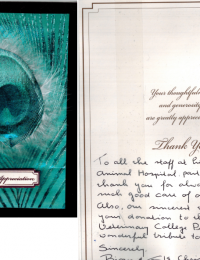 Appreciation
Your thoughtfuln
and generosity
are greatly apprecia
Thank Yo
To all the staff at
Animal Hospital, part
thank you for alwa
such good care of a
Also, our sincere
your donation to th
Veterinary College P
wonderful tribute to
Sincerely,